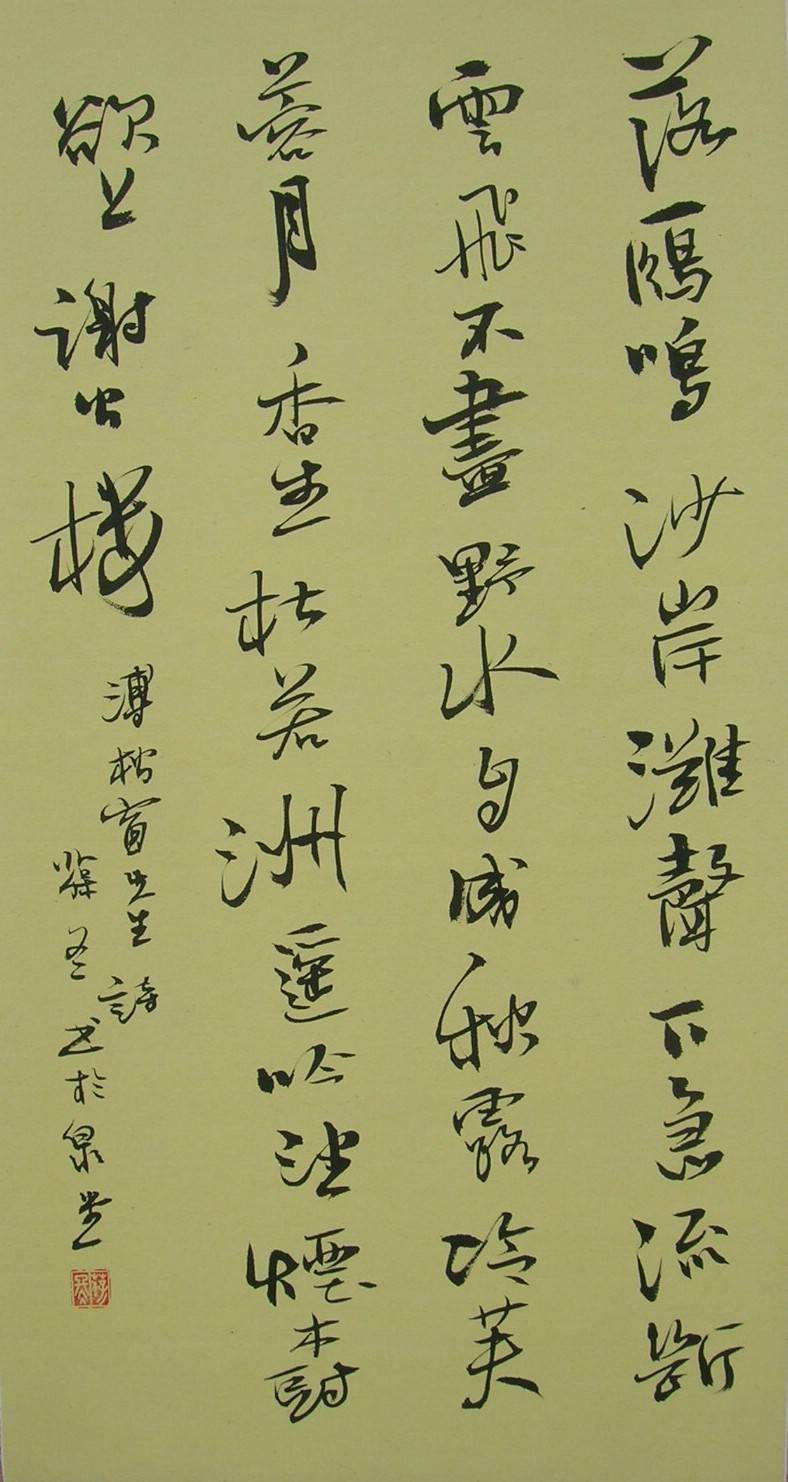 落雁鳴沙岸灘聲下急流斷
雲飛不盡野水自成秋露冷芙
蓉月香生杜若洲遥吟望煙樹
欲上謝公樓
溥松窗先生詩
书於泉